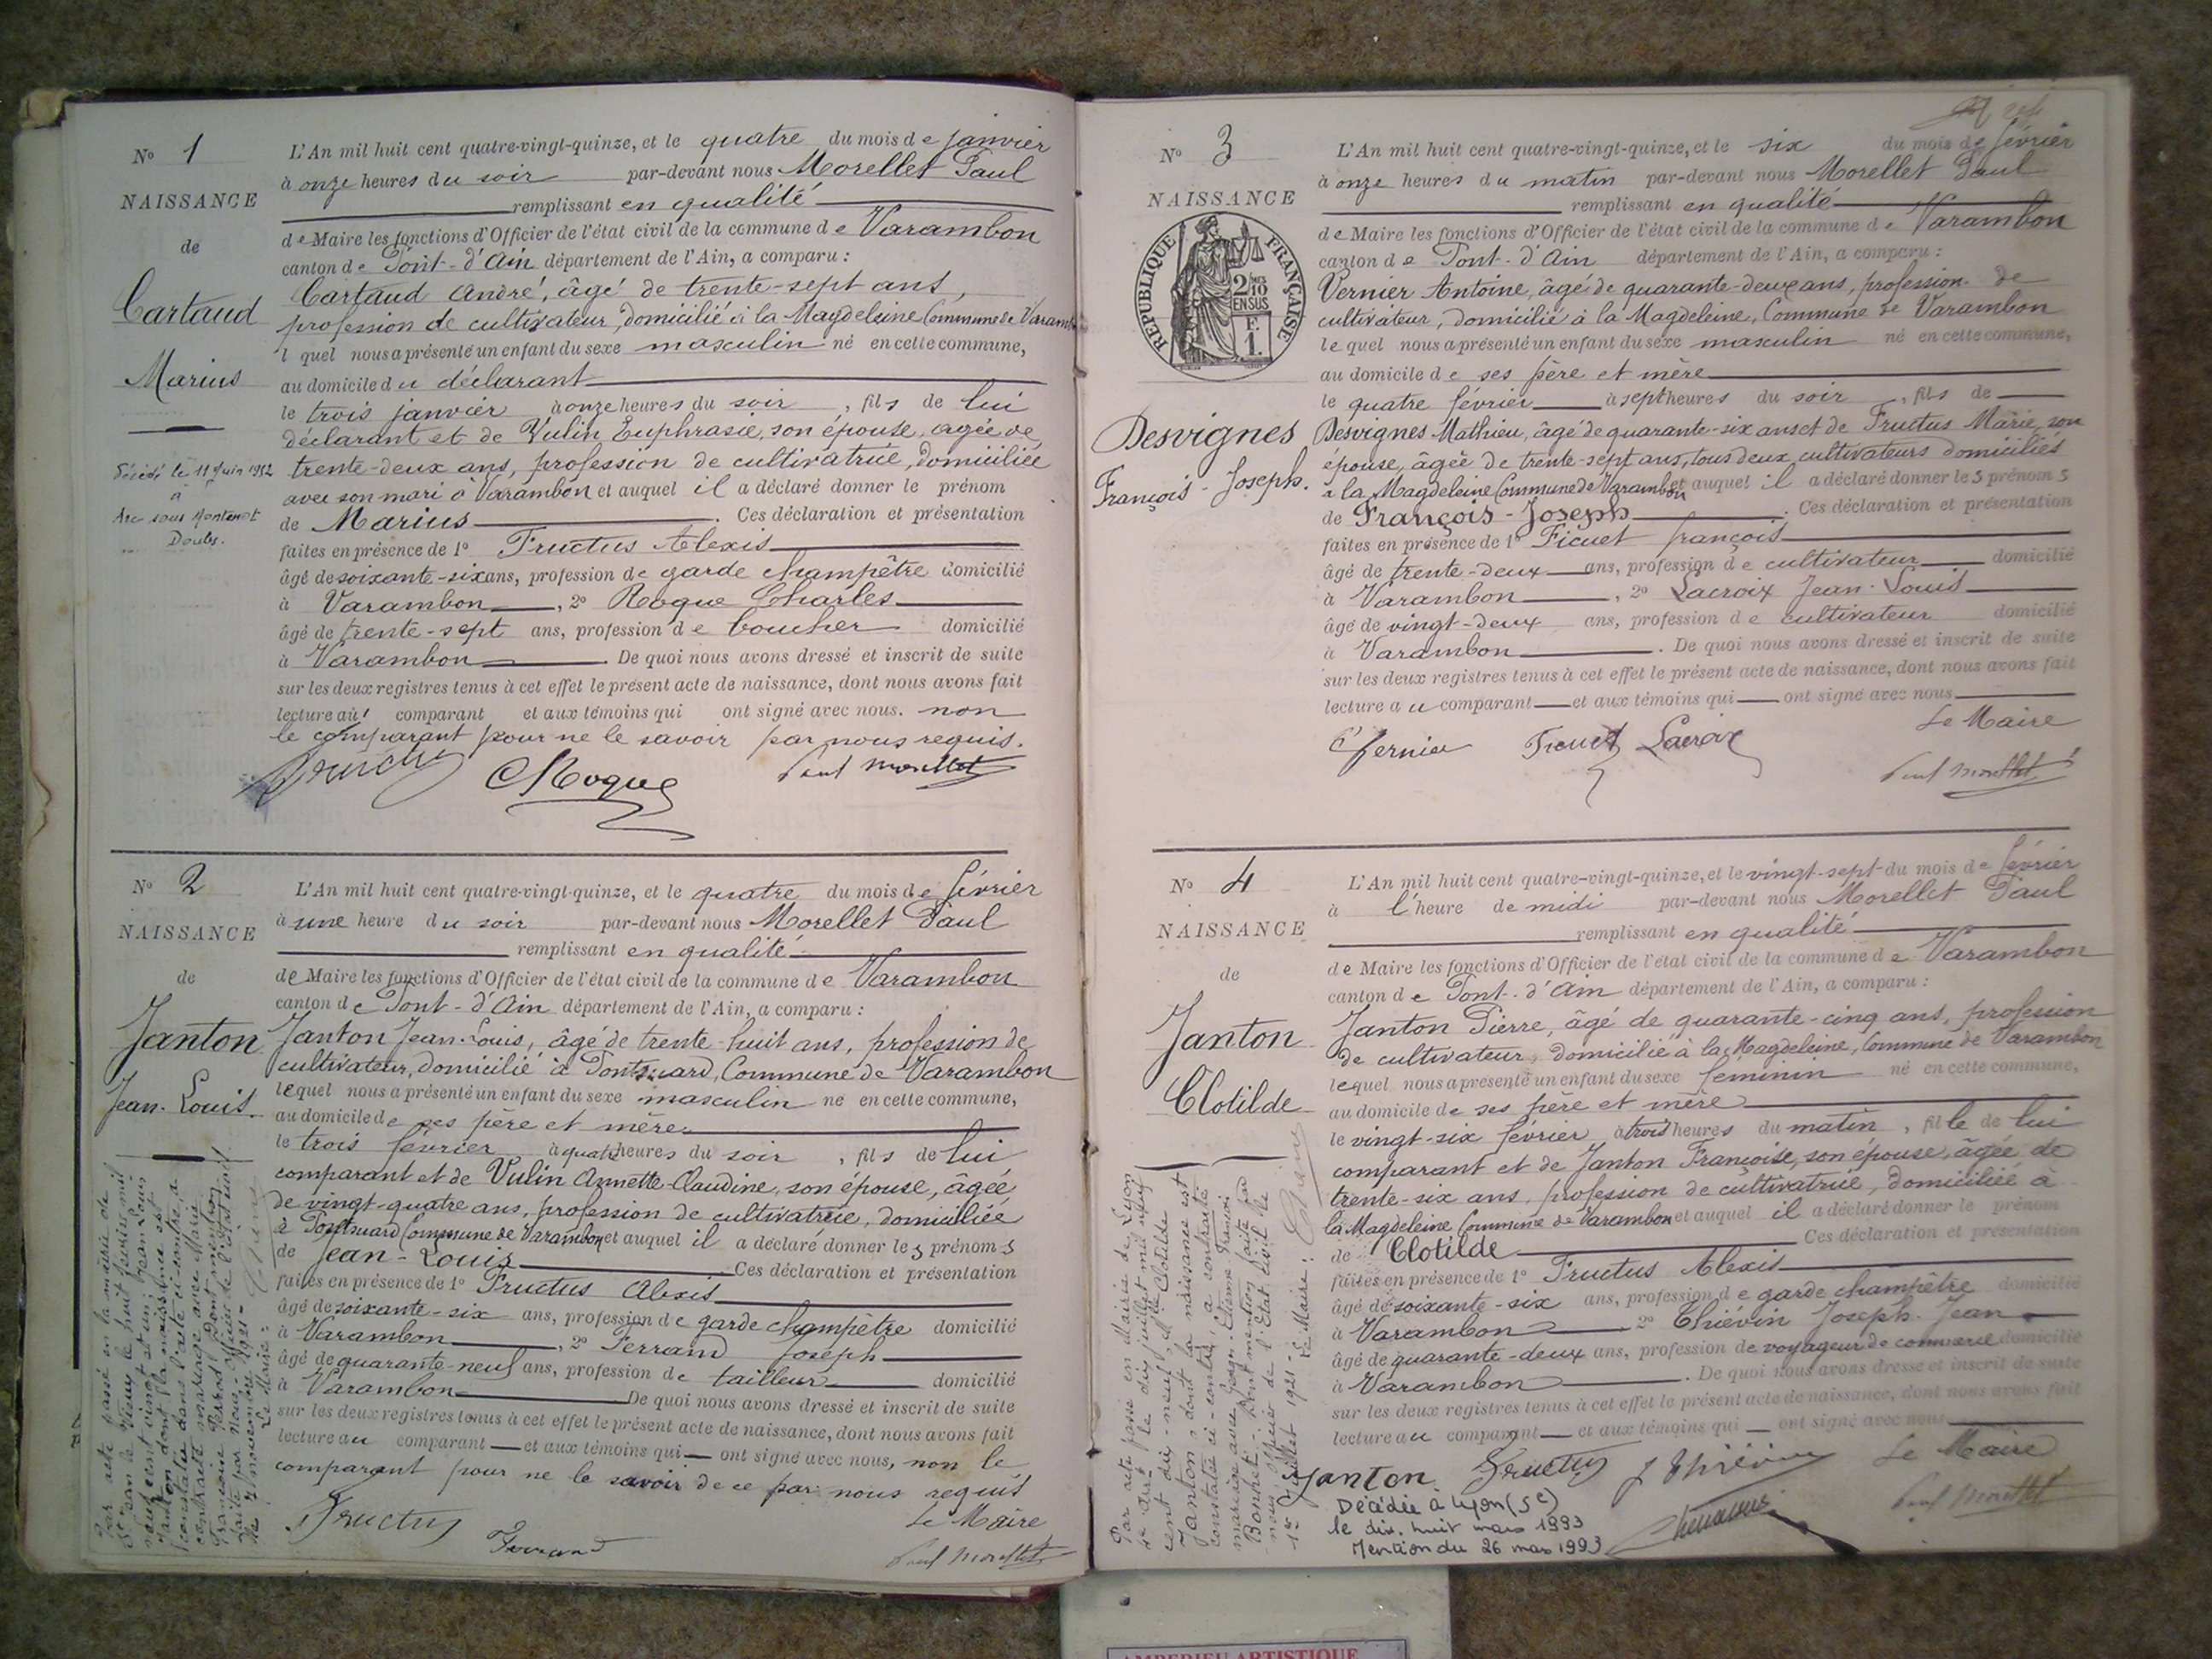 N° 1
NAISSANCE
de
Cartaud
Marius
Décédé le 11 Juin 1952
à
Arc sous Montenot
Doubs.
L'An mil huit cent quatre-vingt-quinze, et le quatre du mois de janvier
à onze heures du soir par-devant nous Morellet Paul
remplissant en qualité
de Maire les fonctions d'Officier de l'état civil de la commune de Varambon
canton de Pont-d'Ain département de l'Ain, a comparu :
Cartaud André, âgé de trente-sept ans,
profession de cultivateur, domicilié à la Magdeleine Commune de Varamb
l quel nous a présenté un enfant du sexe masculin né en cette commune,
au domicile du déclarant
le trois janvier à onze heures du soir, fils de lui
déclarant et de Vulin Euphrasie, son épouse, agée de
trente-deux ans, profession de cultivatrice, domiciliée
avec son mari à Varambon et auquel il a déclaré donner le prénom
de Marius. Ces déclaration et présentation
faites en présence de 1° Fructus Alexis
âgé de soixante-six ans, profession de garde champêtre domicilié
à Varambon, 2° Roque Charles
âgé de trente-sept ans, profession de boucher domicilié
à Varambon. De quoi nous avons dressé et inscrit de suite
sur les deux registres tenus à cet effet le présent acte de naissance, dont nous avons fait
lecture au comparant et aux témoins qui ont signé avec nous. non
le comparant pour ne le savoir par nous requis.
Fructus CRoque Paul Morellet
N° 2
NAISSANCE
de
Janton
Jean-Louis.
L'An mil huit cent quatre-vingt-quinze, et le quatre du mois de février
à une heure du soir par-devant nous Morellet Paul
remplissant en qualité
de Maire les fonctions d'Officier de l'état civil de la commune de Varambon
canton de Pont-d'Ain département de l'Ain, a comparu :
Janton Jean-Louis, âgé de trente-huit ans, profession de
cultivateur, domicilié à Commune de Varambon
lequel nous a présenté un enfant du sexe masculin né en cette commune,
au domicile de ses père et mère
le trois février à quatre heures du soir, fils de lui
comparant et de Vulin Annette-Claudine, son épouse, âgée
de vingt-quatre ans, profession de cultivatrice, domiciliée
à Commune de Varambon et auquel il a déclaré donner les prénoms
de Jean-Louis Ces déclaration et présentation
faites en présence de 1° Fructus Alexis
âgé de soixante-six ans, profession de garde champêtre domicilié
à Varambon, 2° Ferrand Joseph
âgé de quarante-neuf ans, profession de tailleur domicilié
à Varambon De quoi nous avons dressé et inscrit de suite
sur les deux registres tenus à cet effet le présent acte de naissance, dont nous avons fait
lecture au comparant et aux témoins qui ont signé avec nous, non le
comparant pour ne le savoir de ce par nous requis
Le Maire
Fructus Ferrand Paul Morellet
N° 3
NAISSANCE
REPUBLIQUE FRANÇAISE
2/10
EN SUS
F.
1.
Desvignes
François-Joseph.
L'An mil huit cent quatre-vingt-quinze, et le six du mois de février
à onze heures du matin par-devant nous Morellet Paul
remplissant en qualité
de Maire les fonctions d'Officier de l'état civil de la commune de Varambon
canton de Pont-d'Ain département de l'Ain, a comparu :
Vernier Antoine, âgé de quarante-deux ans, profession de
cultivateur, domicilié à la Magdeleine, Commune de Varambon
lequel nous a présenté un enfant du sexe masculin né en cette commune,
au domicile de ses père et mère
le quatre février à sept heures du soir, fils de
Desvignes Mathieu, âgé de quarante-six ans et de Fructus Marie, son
épouse, âgée de trente-sept ans, tous deux cultivateurs domiciliés
à la Magdeleine Commune de Varambon et auquel il a déclaré donner les prénoms
de François-Joseph. Ces déclaration et présentation
faites en présence de 1° Ficuet françois
âgé de trente-deux ans, profession de cultivateur domicilié
à Varambon, 2° Lacroix Jean-Louis
âgé de vingt-deux ans, profession de cultivateur domicilié
à Varambon. De quoi nous avons dressé et inscrit de suite
sur les deux registres tenus à cet effet le présent acte de naissance, dont nous avons fait
lecture au comparant et aux témoins qui ont signé avec nous
Le Maire
Vernier Ficuet Lacroix
Paul Morellet
N° 4
NAISSANCE
de
Janton
Clotilde
L'An mil huit cent quatre-vingt-quinze, et le vingt-sept du mois de février
à l'heure de midi par-devant nous Morellet Paul
remplissant en qualité
de Maire les fonctions d'Officier de l'état civil de la commune de Varambon
canton de Pont-d'Ain département de l'Ain, a comparu :
Janton Pierre, âgé de quarante-cinq ans, profession
de cultivateur, domicilié à la Magdeleine, Commune de Varambon
lequel nous a présenté un enfant du sexe féminin né en cette commune,
au domicile de ses père et mère
le vingt-six février à trois heures du matin, fille de lui
comparant et de Janton Françoise, son épouse, âgée de
trente-six ans, profession de cultivatrice, domiciliée à
la Magdeleine Commune de Varambon et auquel il a déclaré donner le prénom
de Clotilde Ces déclaration et présentation
faites en présence de 1° Fructus Alexis
âgé de soixante-six ans, profession de garde champêtre domicilié
à Varambon 2° Thiévin Joseph-Jean
âgé de quarante-deux ans, profession de voyageur de commerce domicilié
à Varambon. De quoi nous avons dressé et inscrit de suite
sur les deux registres tenus à cet effet le présent acte de naissance, dont nous avons fait
lecture au comparant et aux témoins qui ont signé avec nous
Janton Fructus J Thiévin Le Maire
Paul Morellet
Décédée à Lyon (5e)
le dix-huit mars 1993
Mention du 26 mars 1993
AMBERIEU ARTISTIQUE